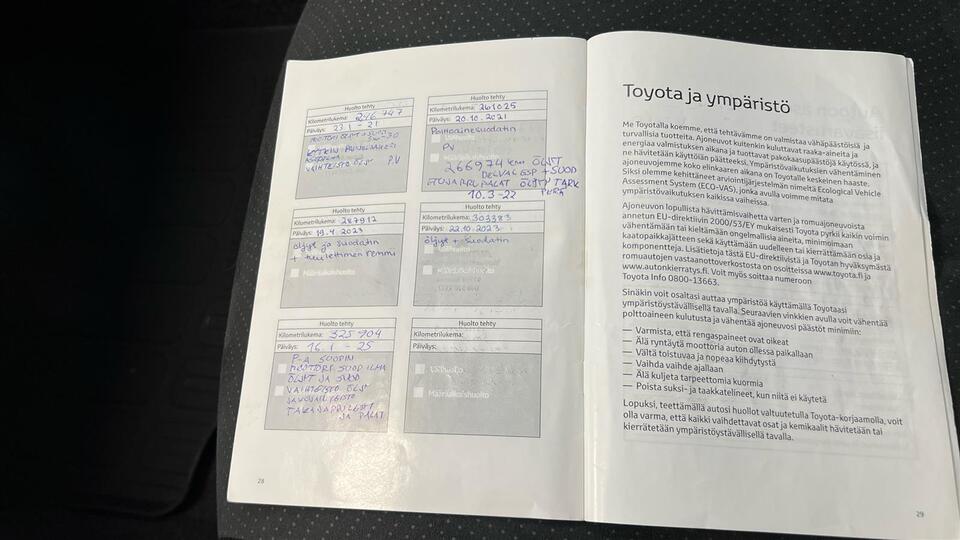 Huolto tehty
Kilometrilukema: 246 747
Päiväys: 23.1 - 21
VAIHTEISTO ÖLJY P.V
Huolto tehty
Kilometrilukema: 261025
Päiväys: 20.10.2021
Polttoainesuodatin
PV
266974 km ÖLJYT
ETUJARRUPALAT ÖLJYN TARK
10.3-22 PERÄ
Huolto tehty
Kilometrilukema: 287912
Päiväys: 19.4.2023
öljyt ja suodatin
+ tuulettimen remmi
Määräaikaishuolto
Huolto tehty
Kilometrilukema: 303383
Päiväys: 22.10.2023
öljyt + suodatin
Välihuolto
Määräaikaishuolto
Huolto tehty
Kilometrilukema: 325904
Päiväys: 16.1 - 25
P-A SUODIN
MOOTTORI SUOD ILMA
ÖLJYT JA SUOD
VAIHTEISTO ÖLJY
JAKOVAIHTEISTO
TAKAJARRULEVYT
JA PALAT
Huolto tehty
Kilometrilukema:
Päiväys:
Välihuolto
Määräaikaishuolto
28
Toyota ja ympäristö
Me Toyotalla koemme, että tehtävämme on valmistaa vähäpäästöisiä ja
turvallisia tuotteita. Ajoneuvot kuitenkin kuluttavat raaka-aineita ja
energiaa valmistuksen aikana ja tuottavat pakokaasupäästöjä käytössä, ja
ne hävitetään käyttöiän päätteeksi. Ympäristövaikutuksien vähentäminen
ajoneuvojemme koko elinkaaren aikana on Toyotalle keskeinen haaste.
Siksi olemme kehittäneet arviointijärjestelmän nimeltä Ecological Vehicle
Assessment System (ECO-VAS), jonka avulla voimme mitata
ympäristövaikutuksen kaikissa vaiheissa.
Ajoneuvon lopullista hävittämisvaihetta varten ja romuajoneuvoista
annetun EU-direktiivin 2000/53/EY mukaisesti Toyota pyrkii kaikin voimin
vähentämään tai kieltämään ongelmallisia aineita, minimoimaan
kaatopaikkajätteen sekä käyttämään uudelleen tai kierrättämään osia ja
komponentteja. Lisätietoja tästä EU-direktiivistä ja Toyotan hyväksymästä
romuautojen vastaanottoverkostosta on osoitteissa www.toyota.fi ja
www.autonkierratys.fi. Voit myös soittaa numeroon
Toyota Info 0800-13663.
Sinäkin voit osaltasi auttaa ympäristöä käyttämällä Toyotaasi
ympäristöystävällisellä tavalla. Seuraavien vinkkien avulla voit vähentää
polttoaineen kulutusta ja vähentää ajoneuvosi päästöt minimiin:
— Varmista, että rengaspaineet ovat oikeat
— Älä ryntäytä moottoria auton ollessa paikallaan
— Vältä toistuvaa ja nopeaa kiihdytystä
— Vaihda vaihde ajallaan
— Älä kuljeta tarpeettomia kuormia
— Poista suksi- ja taakkatelineet, kun niitä ei käytetä
Lopuksi, teettämällä autosi huollot valtuutetulla Toyota-korjaamolla, voit
olla varma, että kaikki vaihdettavat osat ja kemikaalit hävitetään tai
kierrätetään ympäristöystävällisellä tavalla.
29